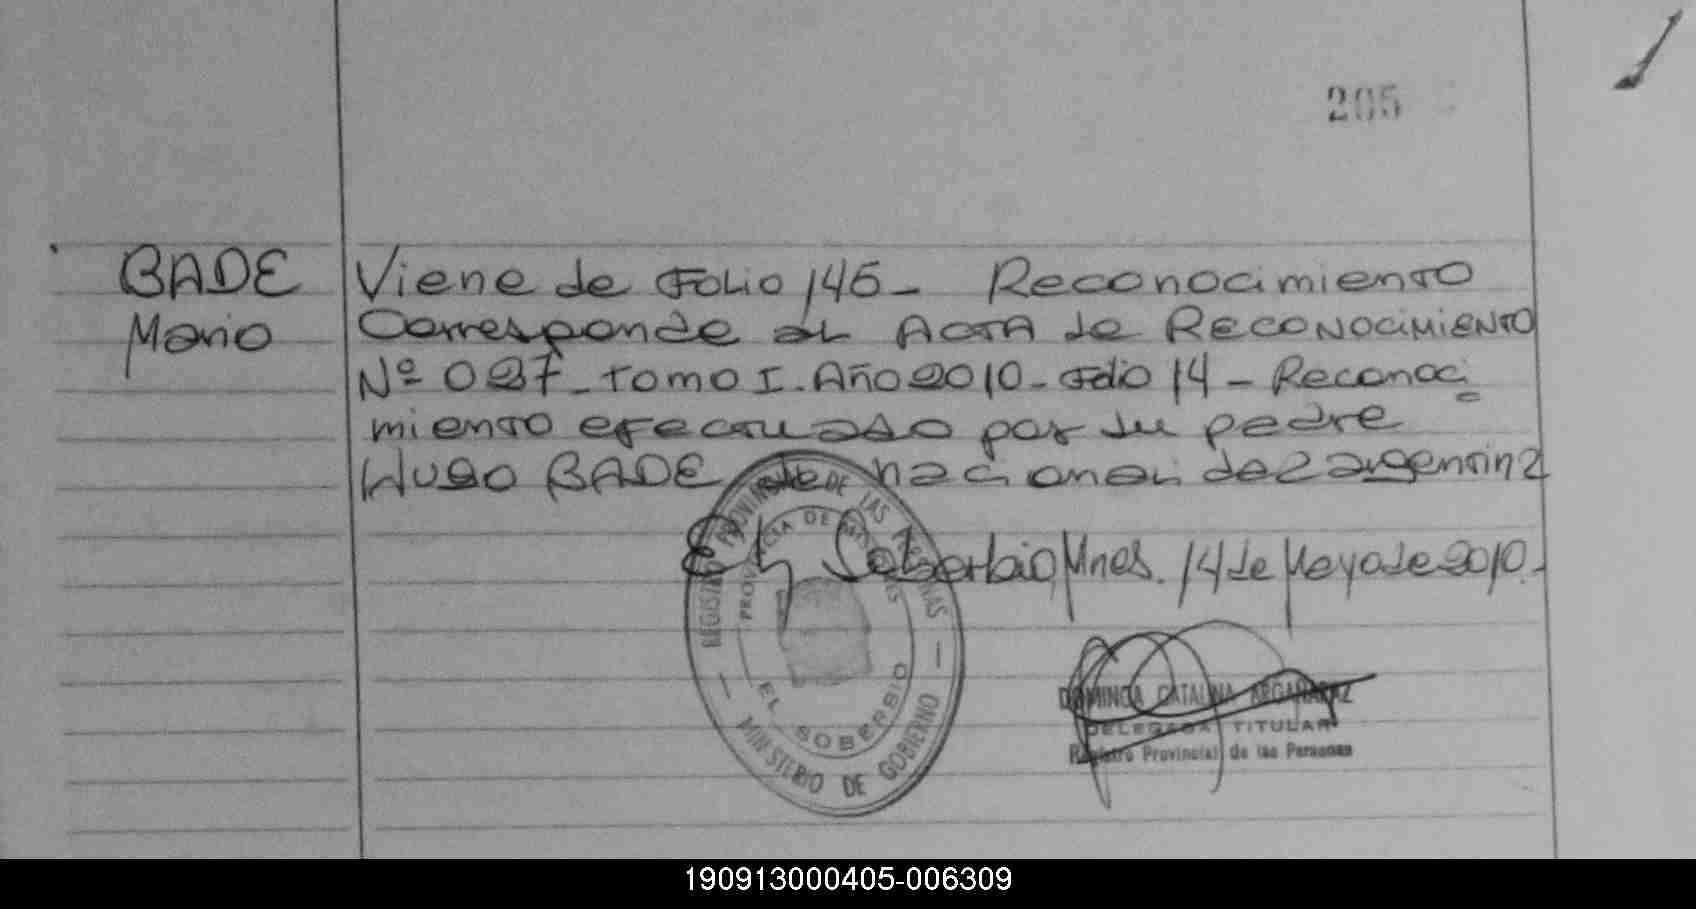 205
BADE Viene de Folio 145- Reconocimiento
Mario Corresponde al ACTA de RECONOCIMIENTO
Nº 027-Tomo I. Año 2010- Folio 14 - Reconoci
miento efectuado por su padre
Hugo BADE de nacionali dad argentina
El Soberbio, Mnes. 14 de Mayo de 2010.-
REGISTRO PROVINCIAL DE LAS PERSONAS
PROVINCIA DE MISIONES
EL SOBERBIO
MINISTERIO DE GOBIERNO
DOMINGA CATALINA ARGAÑARAZ
DELEGADA TITULAR
Registro Provincial de las Personas
190913000405-006309